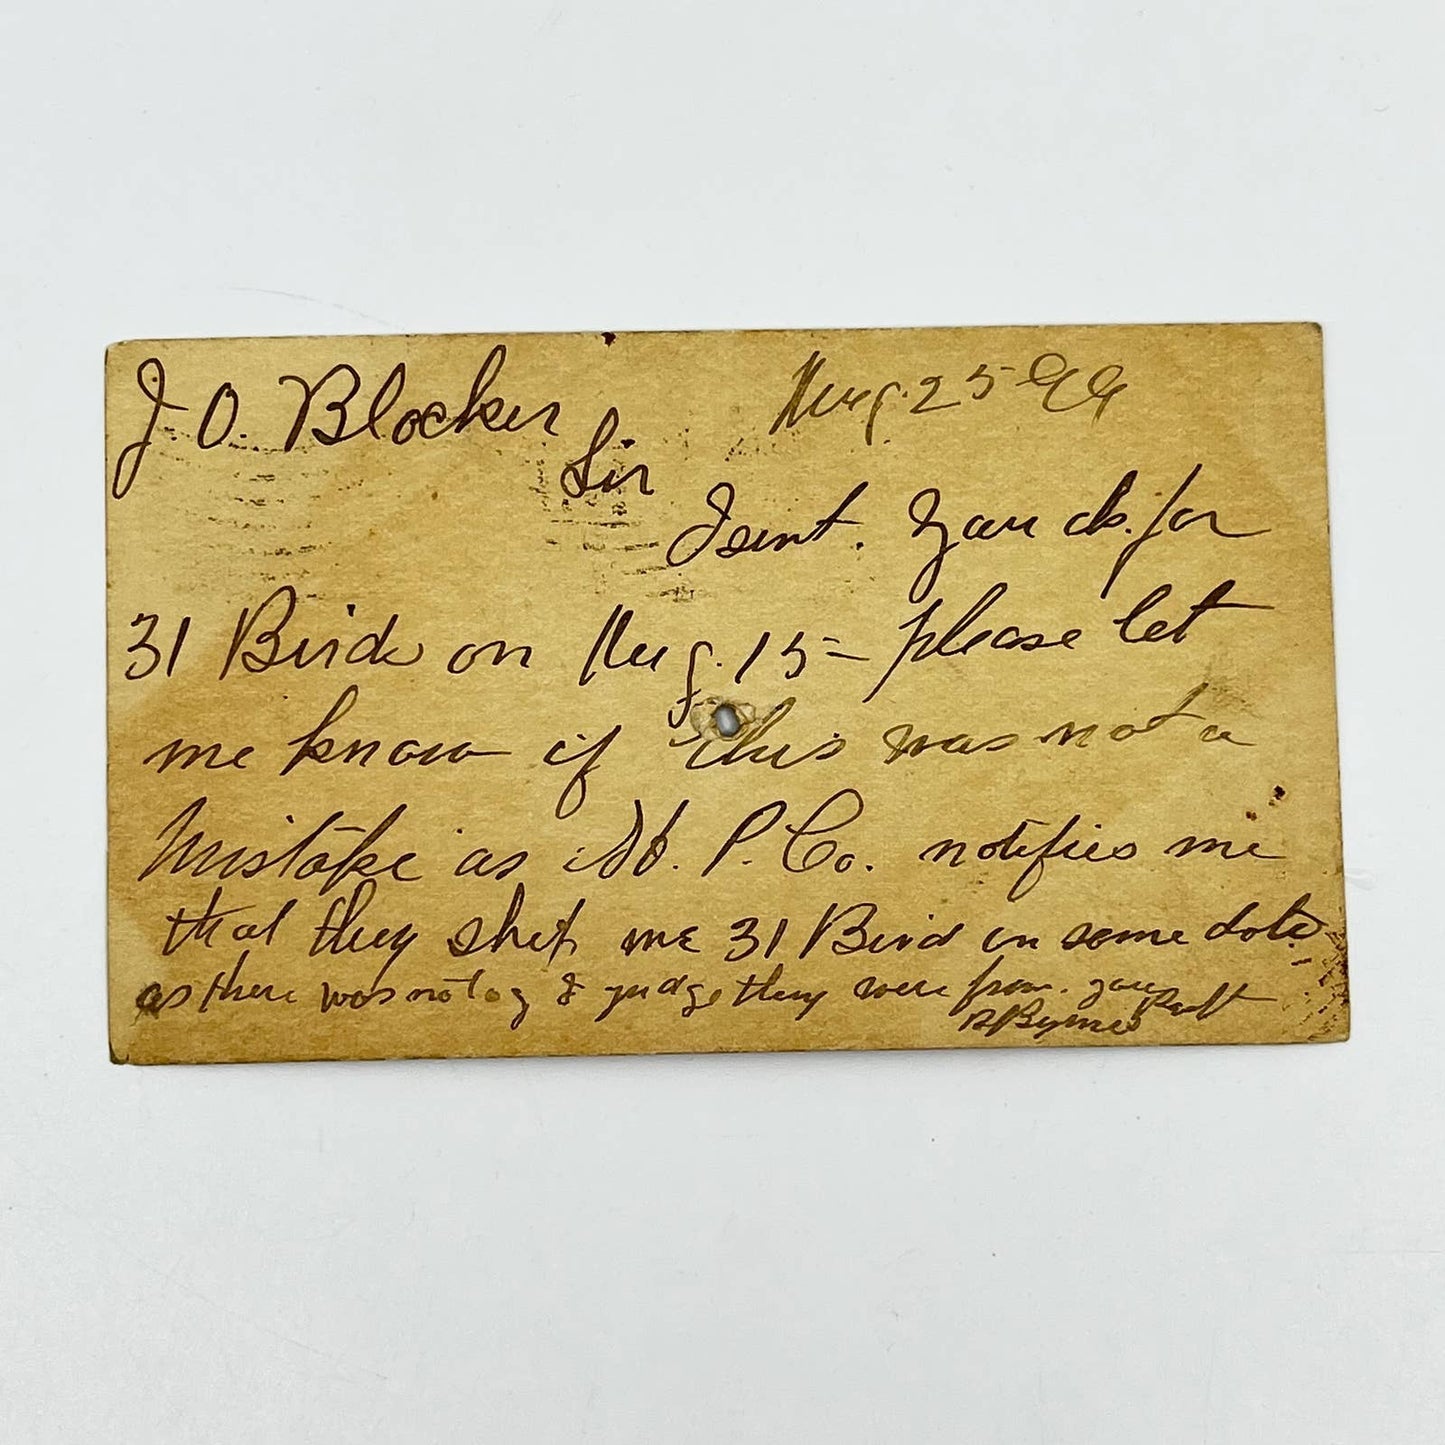 J. O. Blocker Aug. 25-99
Sir
I sent. you ck. for
31 Birds on Aug. 15- please let
me know if this was not a
Mistake as St. P. Co. notifies me
that they shipt me 31 Bird on some date
as there was no tag I judge they were from. you
Byrnes